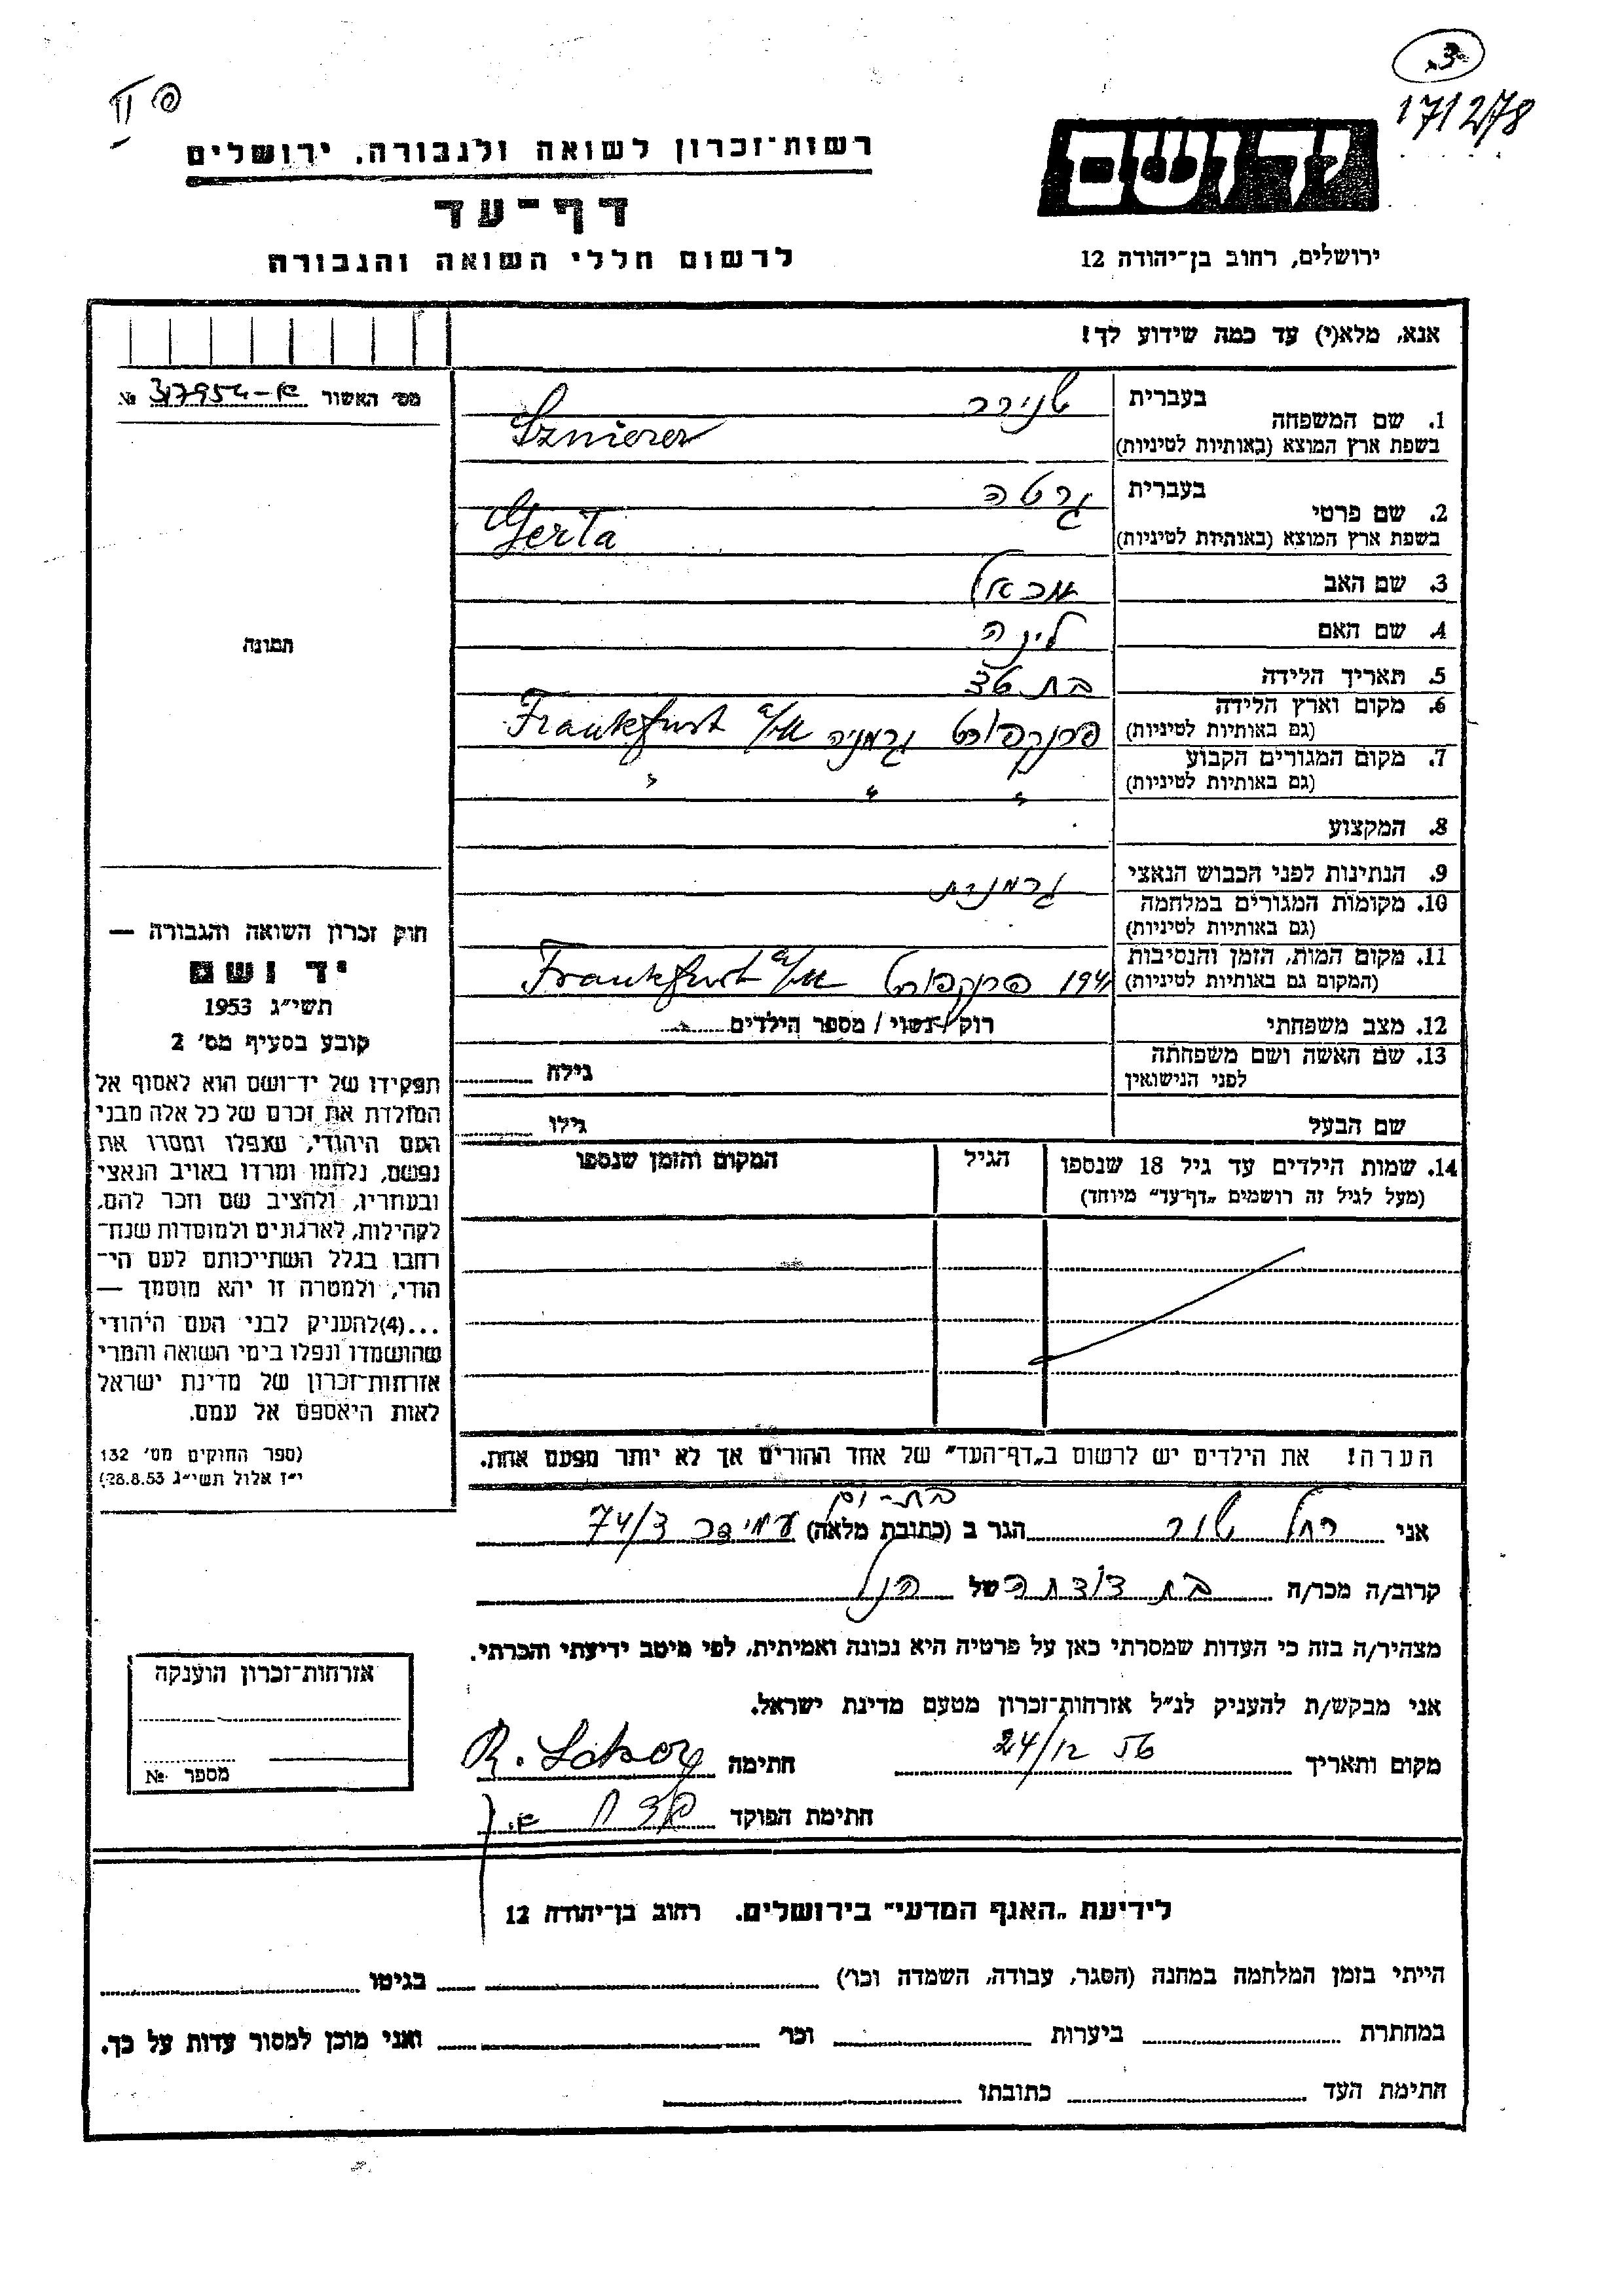 171278
רשות־זכרון לשואה ולגבורה, ירושלים
דף־עד
לרשום חללי השואה והגבורה
יד ושם
ירושלים, רחוב בן־יהודה 12
אנא, מלא(י) עד כמה שידוע לך!
מס' האשור № 317954-א
1. שם המשפחה
בעברית שנירר
בשפת ארץ המוצא (באותיות לטיניות) Sznierer
2. שם פרטי
בעברית גרטה
בשפת ארץ המוצא (באותיות לטיניות) Gerta
3. שם האב
4. שם האם לינה
5. תאריך הלידה
6. מקום וארץ הלידה
(גם באותיות לטיניות) פרנקפורט גרמניה Frankfurt a/M
7. מקום המגורים הקבוע
(גם באותיות לטיניות) " " "
8. המקצוע
9. הנתינות לפני הכבוש הנאצי גרמנית
10. מקומות המגורים במלחמה
(גם באותיות לטיניות)
11. מקום המות, הזמן והנסיבות
(המקום גם באותיות לטיניות) 1941 פרנקפורט Frankfurt a/M
12. מצב משפחתי רוק/נשוי/ מספר הילדים
13. שם האשה ושם משפחתה
לפני הנישואין גילה
שם הבעל גילו
14. שמות הילדים עד גיל 18 שנספו
(מעל לגיל זה רושמים „דף־עד" מיוחד)
הגיל
המקום והזמן שנספו
תמונה
חוק זכרון השואה והגבורה —
יד ושם
תשי״ג 1953
קובע בסעיף מס' 2
תפקידו של יד־ושם הוא לאסוף אל
המולדת את זכרם של כל אלה מבני
העם היהודי, שנפלו ומסרו את
נפשם, נלחמו ומרדו באויב הנאצי
ובעוזריו, ולהציב שם וזכר להם,
לקהילות, לארגונים ולמוסדות שנח־
רבו בגלל השתייכותם לעם הי־
הודי, ולמטרה זו יהא מוסמך —
...(4)להעניק לבני העם היהודי
שהושמדו ונפלו בימי השואה והמרי
אזרחות־זכרון של מדינת ישראל
לאות היאספם אל עמם.
(ספר החוקים מס' 132
י״ז אלול תשי״ג 28.8.53)
הערה! את הילדים יש לרשום ב„דף־העד" של אחד ההורים אך לא יותר מפעם אחת.
בת-ים
אני רחל שור הגר ב (כתובת מלאה) עמידר 74/3
קרוב/ה מכר/ה בת דודתה של הנ"ל
מצהיר/ה בזה כי העדות שמסרתי כאן על פרטיה היא נכונה ואמיתית, לפי מיטב ידיעתי והכרתי.
אני מבקש/ת להעניק לנ״ל אזרחות־זכרון מטעם מדינת ישראל.
מקום ותאריך 24/12 56 חתימה
חתימת הפוקד
אזרחות־זכרון הוענקה
מספר №
לידיעת „האגף המדעי" בירושלים. רחוב בן־יהודה 12
הייתי בזמן המלחמה במחנה (הסגר, עבודה, השמדה וכו') בגיטו
במחתרת ביערות וכו' ואני מוכן למסור עדות על כך.
חתימת העד כתובתו